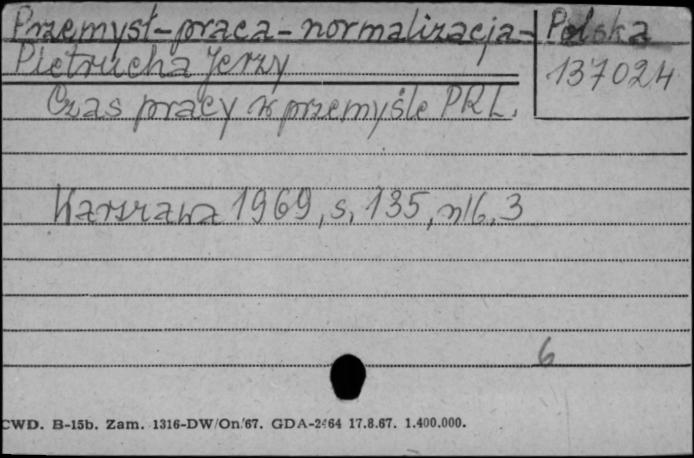 Przemysł-praca-normalizacja- Polska
Pietrucha Jerzy
137024
Czas pracy w przemyśle PRL.
Warszawa 1969, s. 135, nlb. 3
6
CWD. B-15b. Zam. 1316-DW/On/67. GDA-2464 17.8.67. 1.400.000.